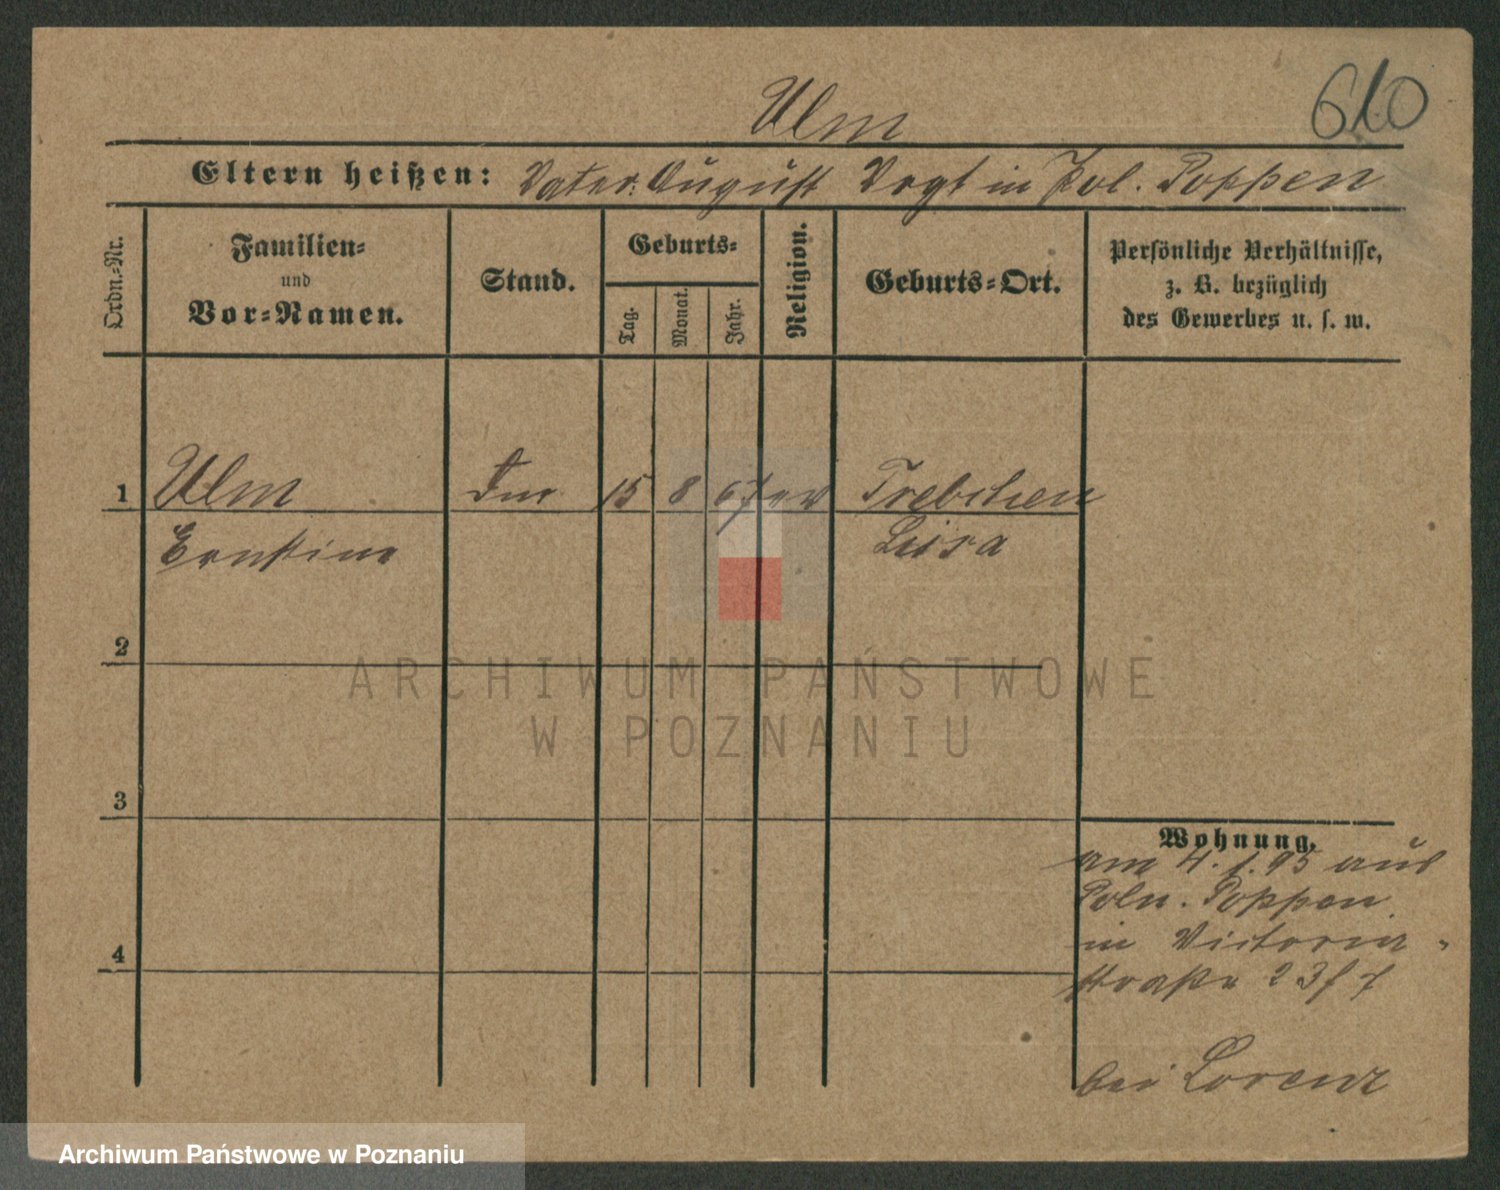 Ulm
610
Eltern heißen: Vater: August Vogt in Pol. Poppen
Ordn.=Nr.
Familien=
und
Vor=Namen.
Stand.
Geburts=
Tag.
Monat.
Jahr.
Religion.
Geburts=Ort.
Persönliche Verhältnisse,
z. B. bezüglich
des Gewerbes u. s. w.
1 Ulm 15 8 67 ev Trebchen
Ernstine Lissa
2
3
4
Wohnung.
am 4.1.95 aus
Poln. Poppen
in Victoria-
straße 23
bei Lorenz
ARCHIWUM PAŃSTWOWE
W POZNANIU
Archiwum Państwowe w Poznaniu